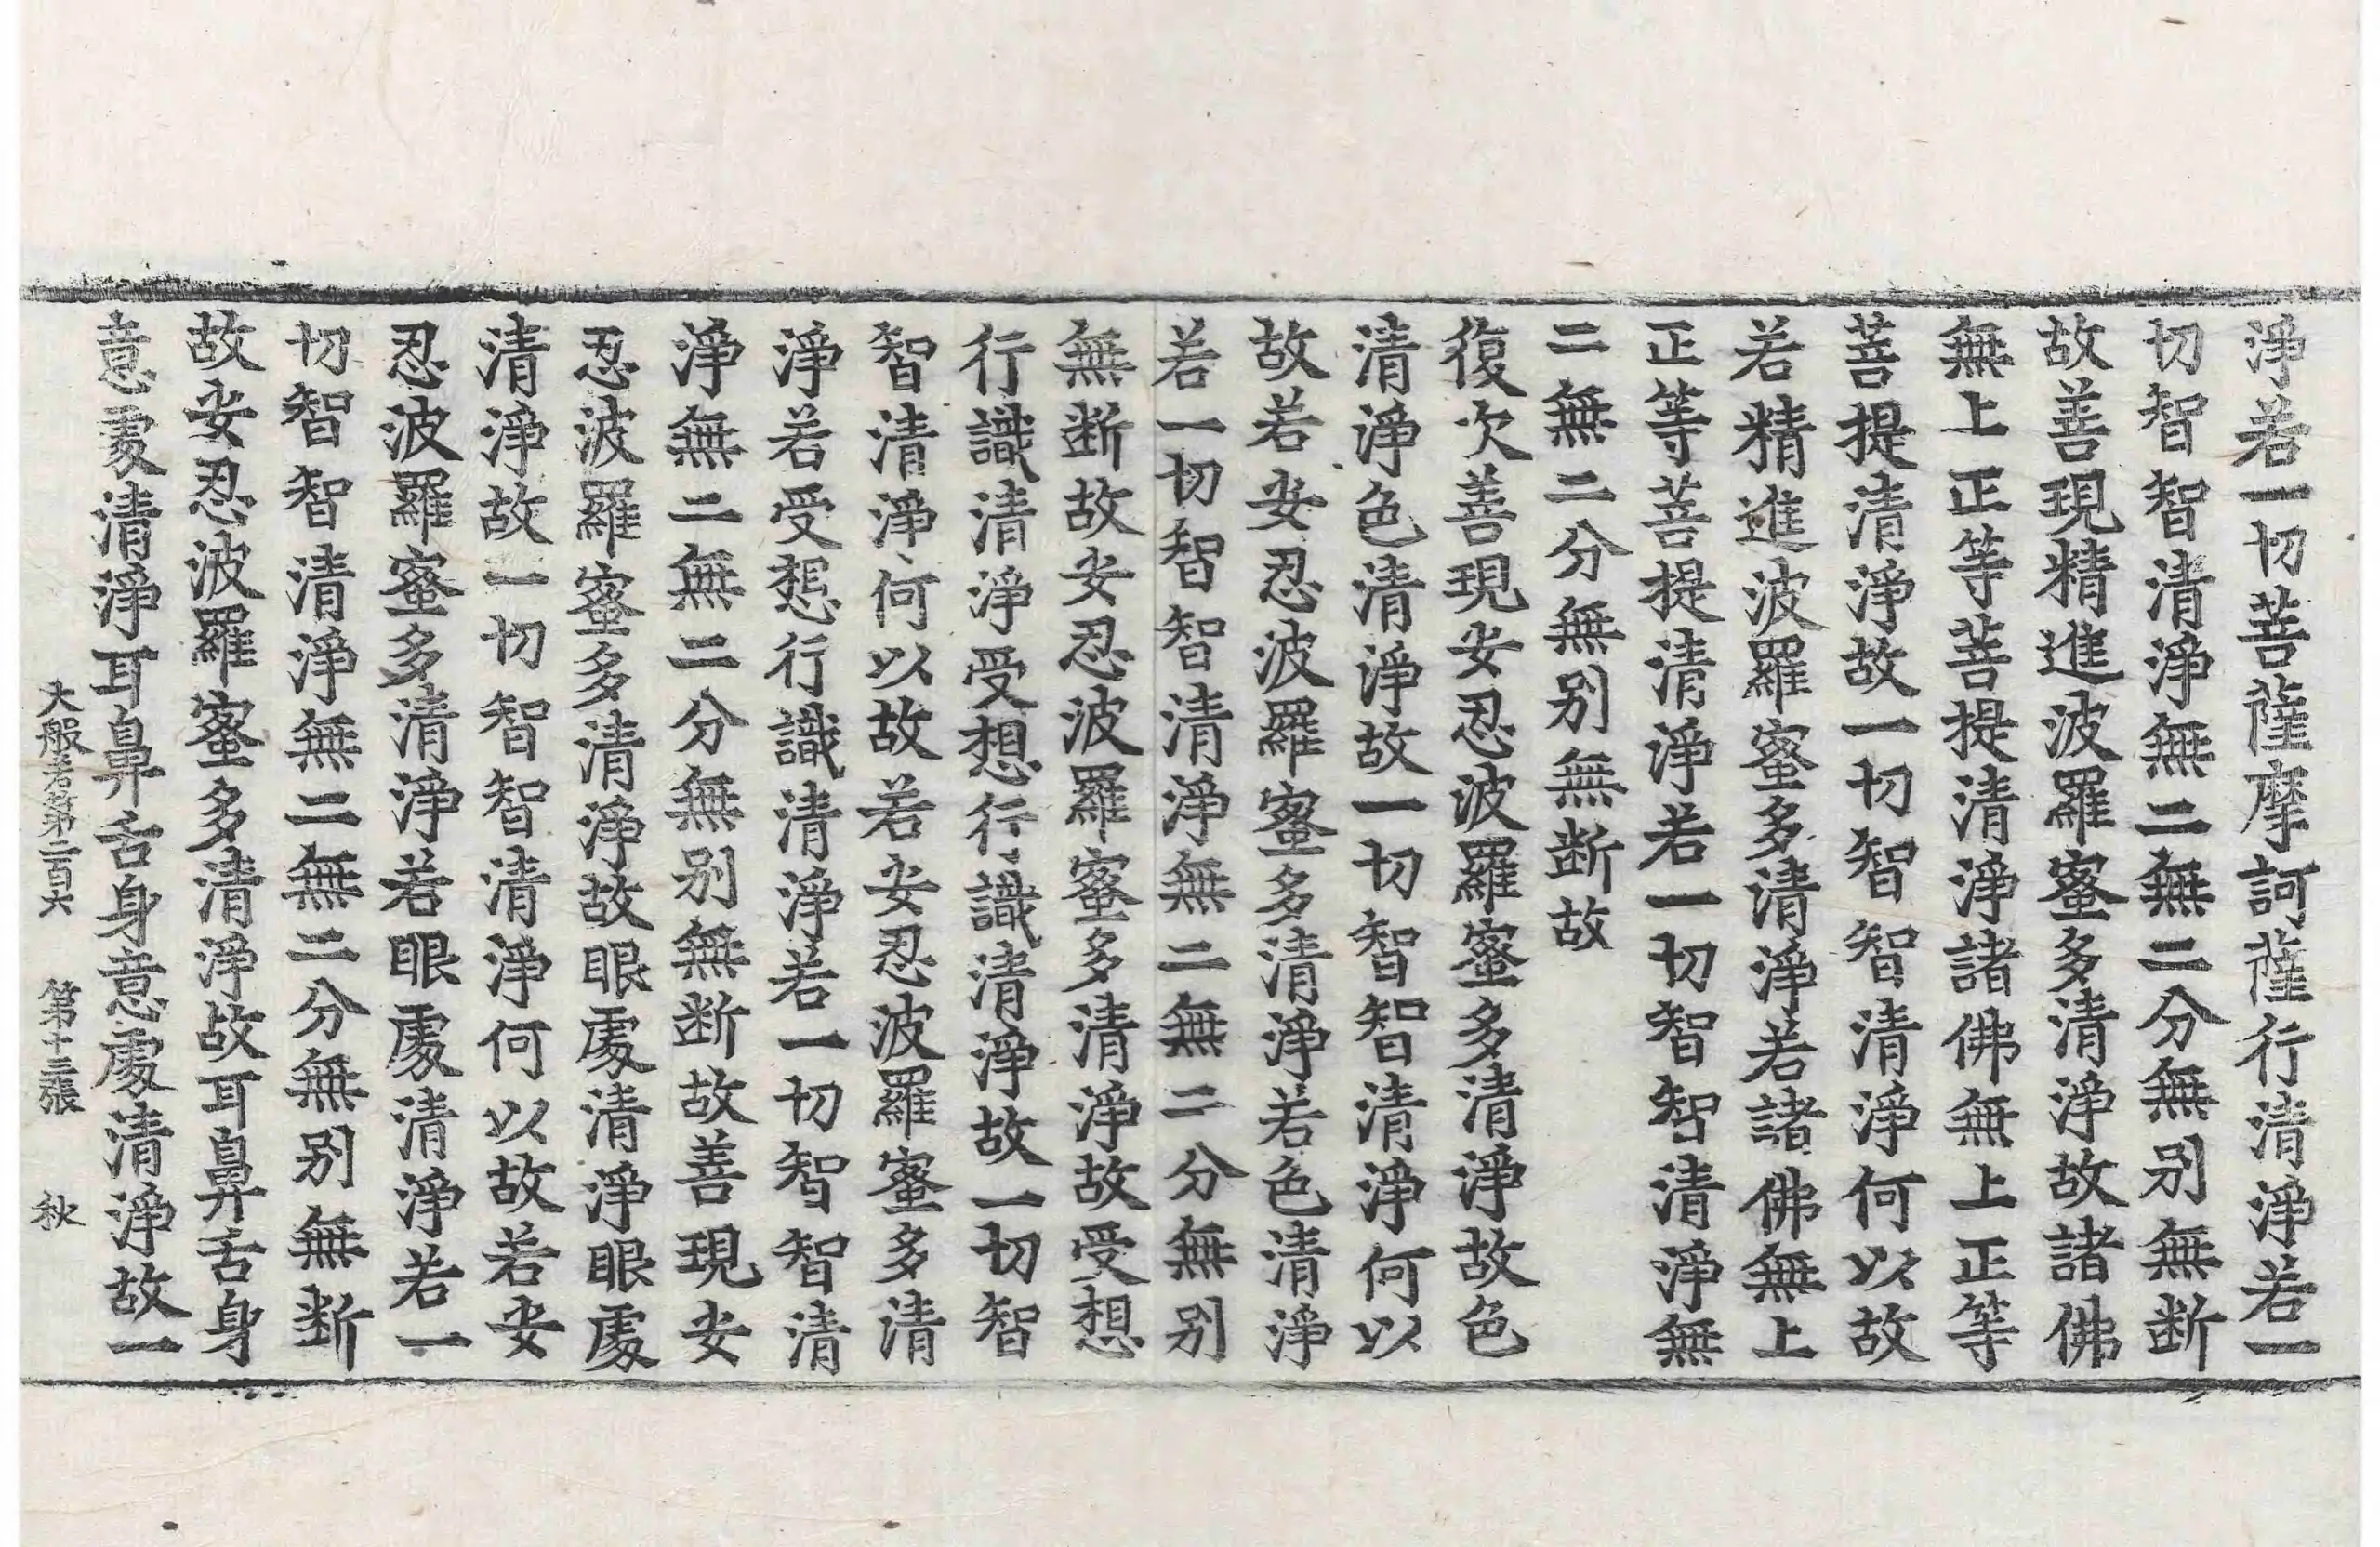 淨若一切菩薩摩訶薩行清淨若一
切智智清淨無二無二分無別無断
故善現精進波羅蜜多清淨故諸佛
無上正等菩提清淨諸佛無上正等
菩提清淨故一切智智清淨何以故
若精進波羅蜜多清淨若諸佛無上
正等菩提清淨若一切智智清淨無
二無二分無別無断故
復次善現安忍波羅蜜多清淨故色
清淨色清淨故一切智智清淨何以
故若安忍波羅蜜多清淨若色清淨
若一切智智清淨無二無二分無別
無断故安忍波羅蜜多清淨故受想
行識清淨受想行識清淨故一切智
智清淨何以故若安忍波羅蜜多清
淨若受想行識清淨若一切智智清
淨無二無二分無別無断故善現安
忍波羅蜜多清淨故眼處清淨眼處
清淨故一切智智清淨何以故若安
忍波羅蜜多清淨若眼處清淨若一
切智智清淨無二無二分無別無断
故安忍波羅蜜多清淨故耳鼻舌身
意處清淨耳鼻舌身意處清淨故一
大般若第二百六 第十三張 秋